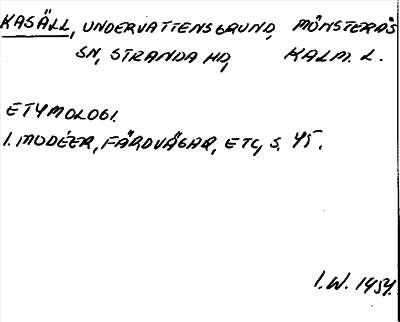 KASÄLL, UNDERVATTENSGRUND, MÖNSTERÅS
SN, STRANDA HD, KALM. L.
ETYMOLOGI.
I. MODÉER, FÄRDVÄGAR, ETC, S. 45.
I.W. 1954.